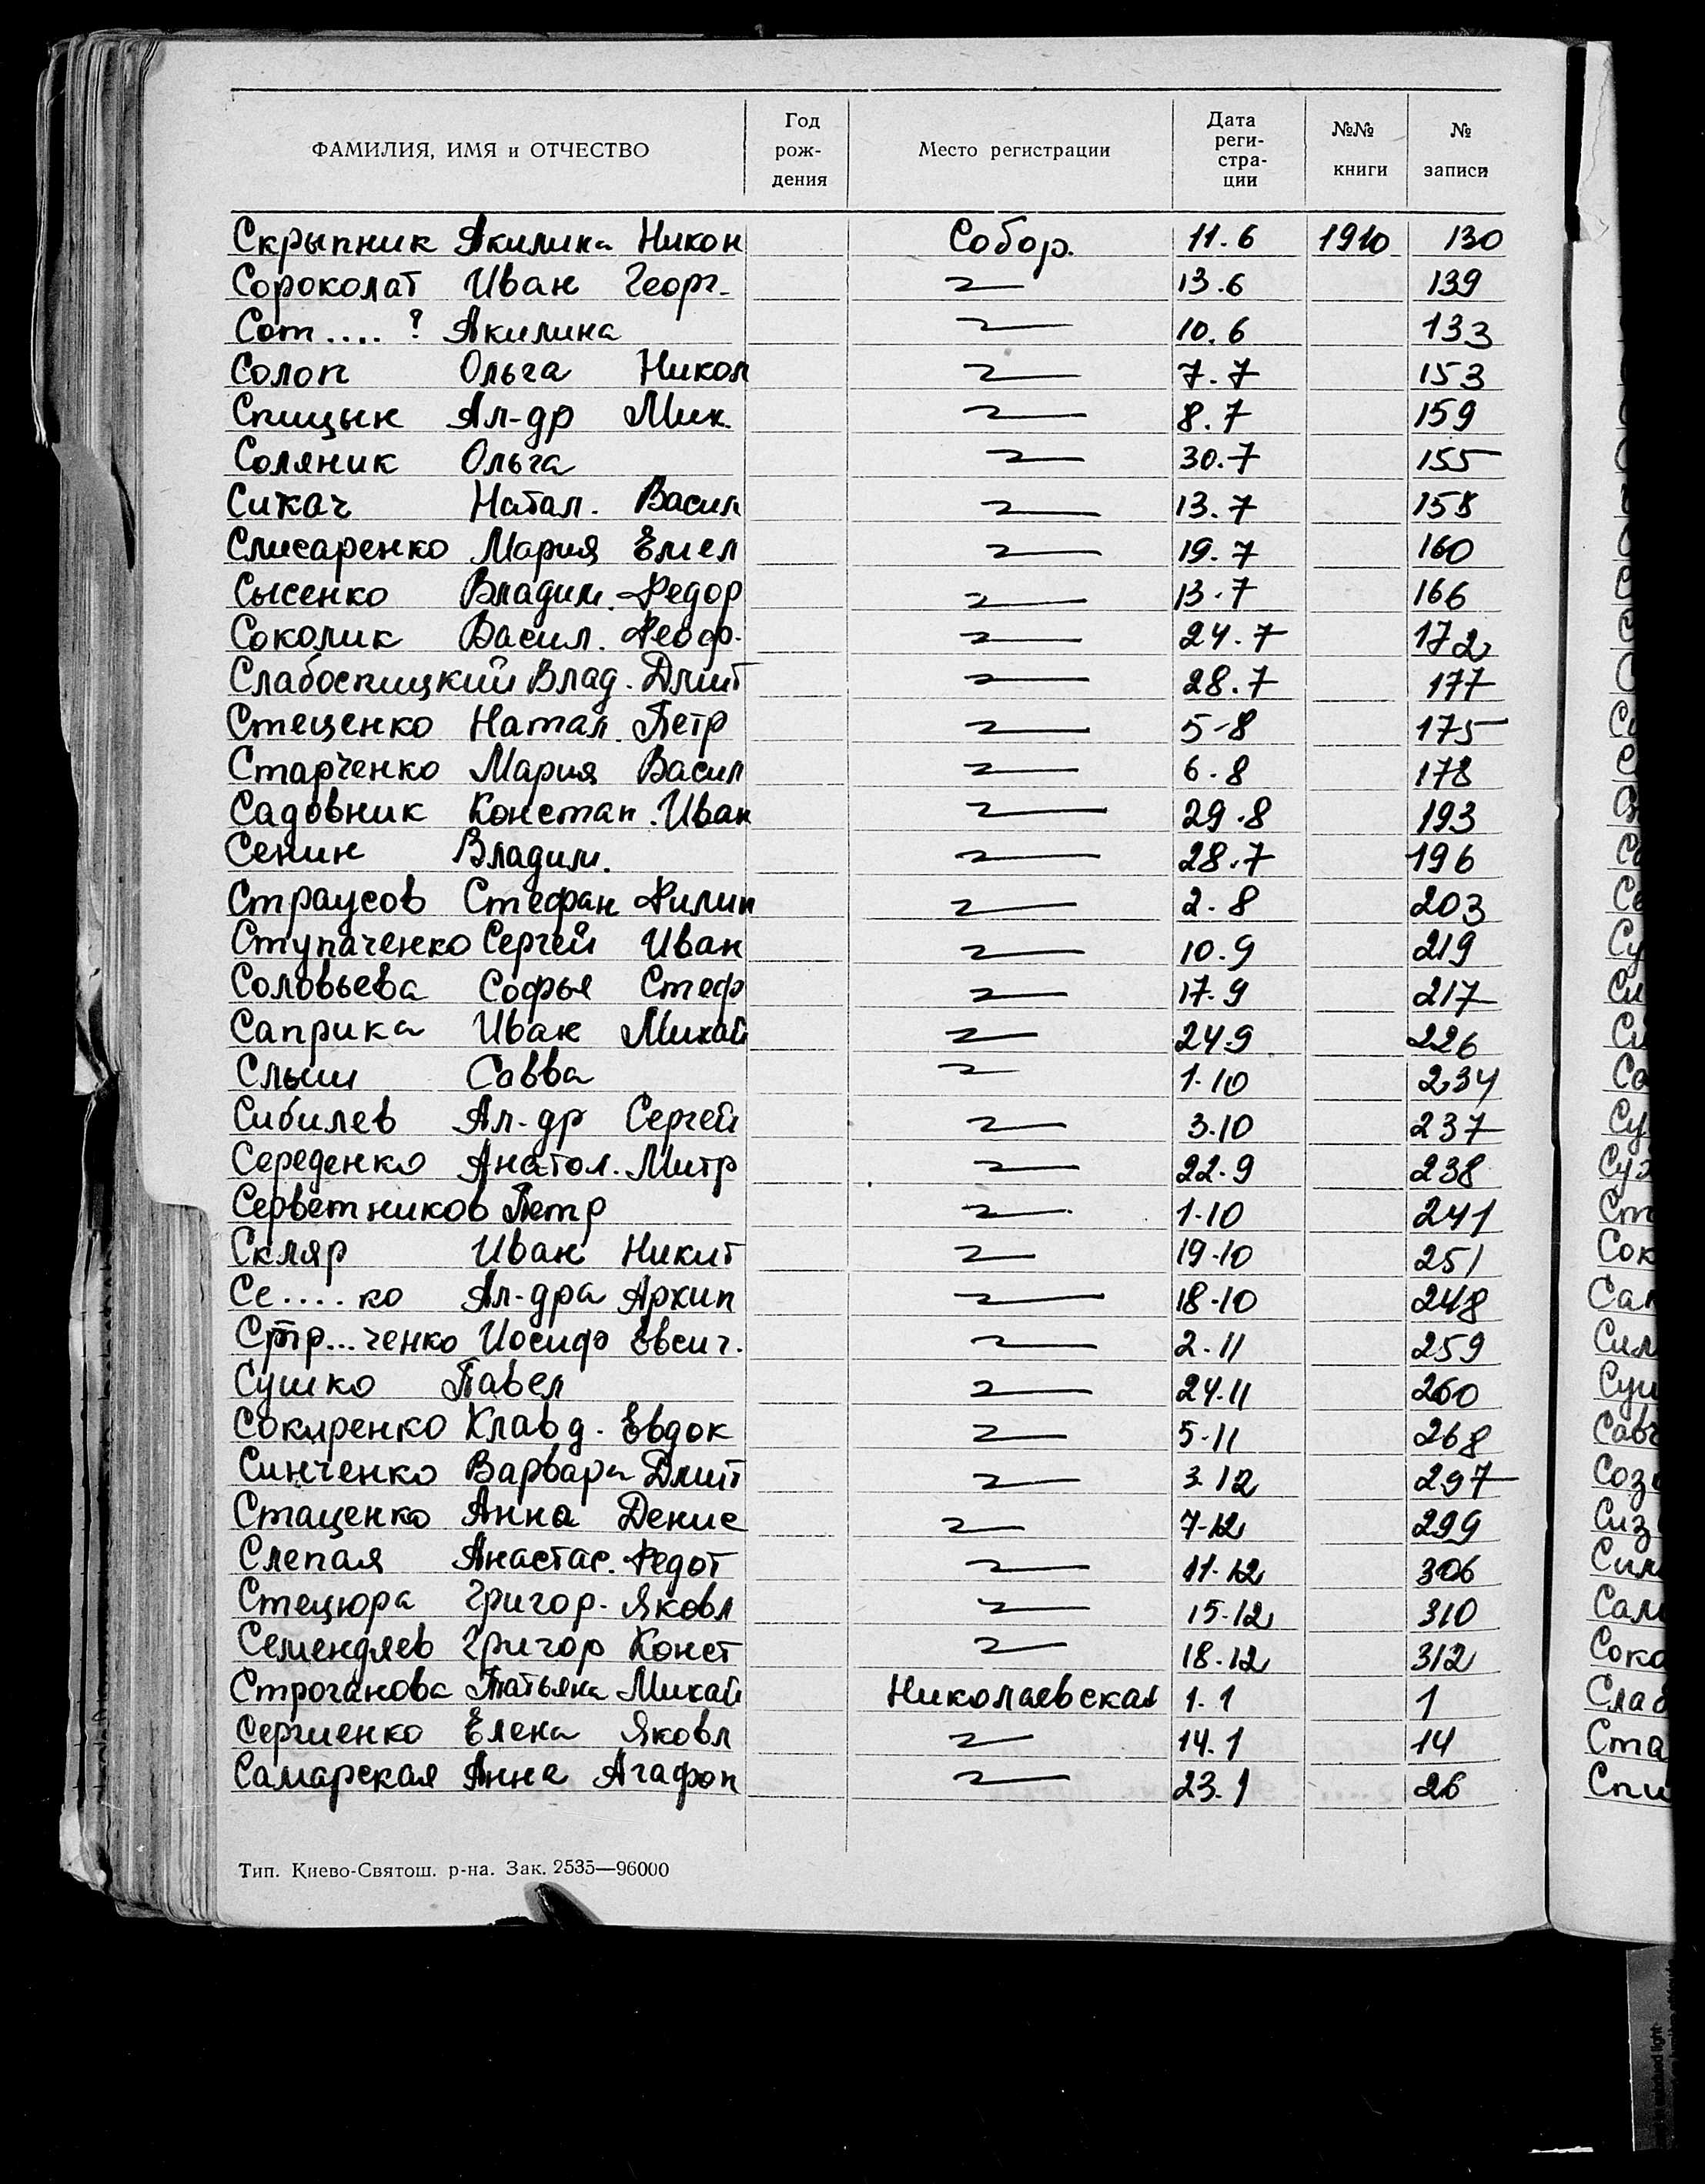 ФАМИЛИЯ, ИМЯ и ОТЧЕСТВО Год рож- дения Место регистрации Дата реги- стра- ции №№ книги № записи
Скрыпник Акилина Никон Собор. 11.6 1910 130
Сороколат Иван Георг. 13.6 139
Сот....? Акилина 10.6 133
Солоп Ольга Никол 7.7 153
Спицын Ал-др Мих. 8.7 159
Соляник Ольга 30.7 155
Сикач Натал. Васил 13.7 158
Слисаренко Мария Емел 19.7 160
Сысенко Владим. Федор 13.7 166
Соколик Васил. Феоф. 24.7 172
Слабоспицкий Влад. Дмит 28.7 177
Стеценко Натал. Петр 5-8 175
Старченко Мария Васил 6.8 178
Садовник Констан. Иван 29.8 193
Сенин Владим. 28.7 196
Страусов Стефан Филип 2.8 203
Ступаченко Сергей Иван 10.9 219
Соловьева Софья Стеф 17.9 217
Саприка Иван Михай 24.9 226
Слыш Савва 1.10 234
Сибилев Ал-др Сергей 3.10 237
Середенко Анатол. Митр 22.9 238
Серветников Петр 1.10 241
Скляр Иван Никит 19.10 251
Се....ко Ал-дра Архип 18.10 248
Стр...ченко Иосиф Евсич. 2.11 259
Сушко Павел 24.11 260
Сокиренко Клавд. Евдок 5.11 268
Синченко Варвара Дмит 3 12 297
Стаценко Анна Денис 7-12 299
Слепая Анастас. Федот 11.12 306
Стецюра Григор. Яковл 15.12 310
Семендяев Григор Конст 18.12 312
Строганова Татьяна Михай Николаевская 1.1 1
Сергиенко Елена Яковл 14.1 14
Самарская Анна Агафон 23.1 26
Тип. Киево-Святош. р-на. Зак. 2535—96000